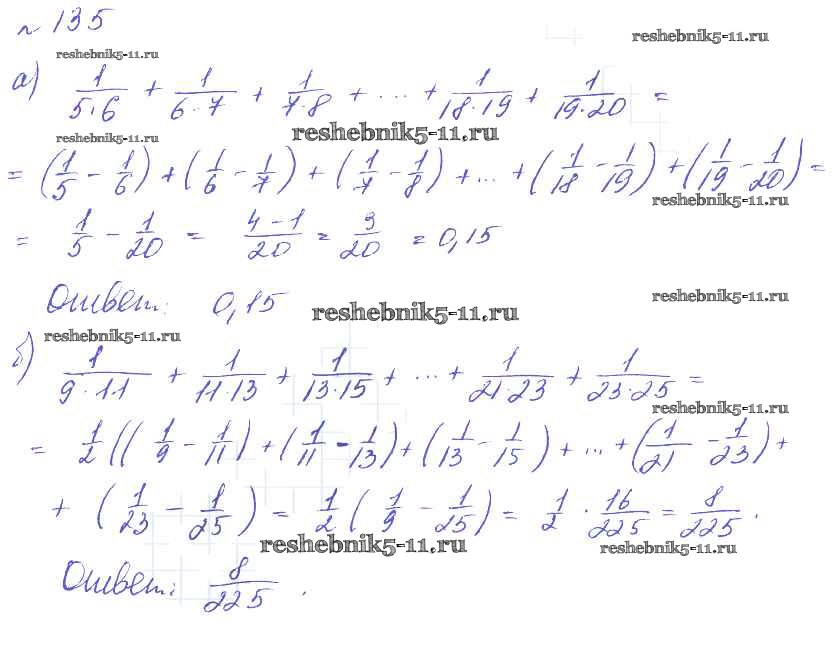 № 135
reshebnik5-11.ru
reshebnik5-11.ru
а) 1/(5·6) + 1/(6·7) + 1/(7·8) + ... + 1/(18·19) + 1/(19·20) =
reshebnik5-11.ru
reshebnik5-11.ru
= (1/5 - 1/6) + (1/6 - 1/7) + (1/7 - 1/8) + ... + (1/18 - 1/19) + (1/19 - 1/20) =
reshebnik5-11.ru
= 1/5 - 1/20 = (4-1)/20 = 3/20 = 0,15
Ответ: 0,15
reshebnik5-11.ru
reshebnik5-11.ru
reshebnik5-11.ru
б) 1/(9·11) + 1/(11·13) + 1/(13·15) + ... + 1/(21·23) + 1/(23·25) =
reshebnik5-11.ru
= 1/2 ((1/9 - 1/11) + (1/11 - 1/13) + (1/13 - 1/15) + ... + (1/21 - 1/23) +
+ (1/23 - 1/25) = 1/2 (1/9 - 1/25) = 1/2 · 16/225 = 8/225.
reshebnik5-11.ru
reshebnik5-11.ru
Ответ: 8/225.